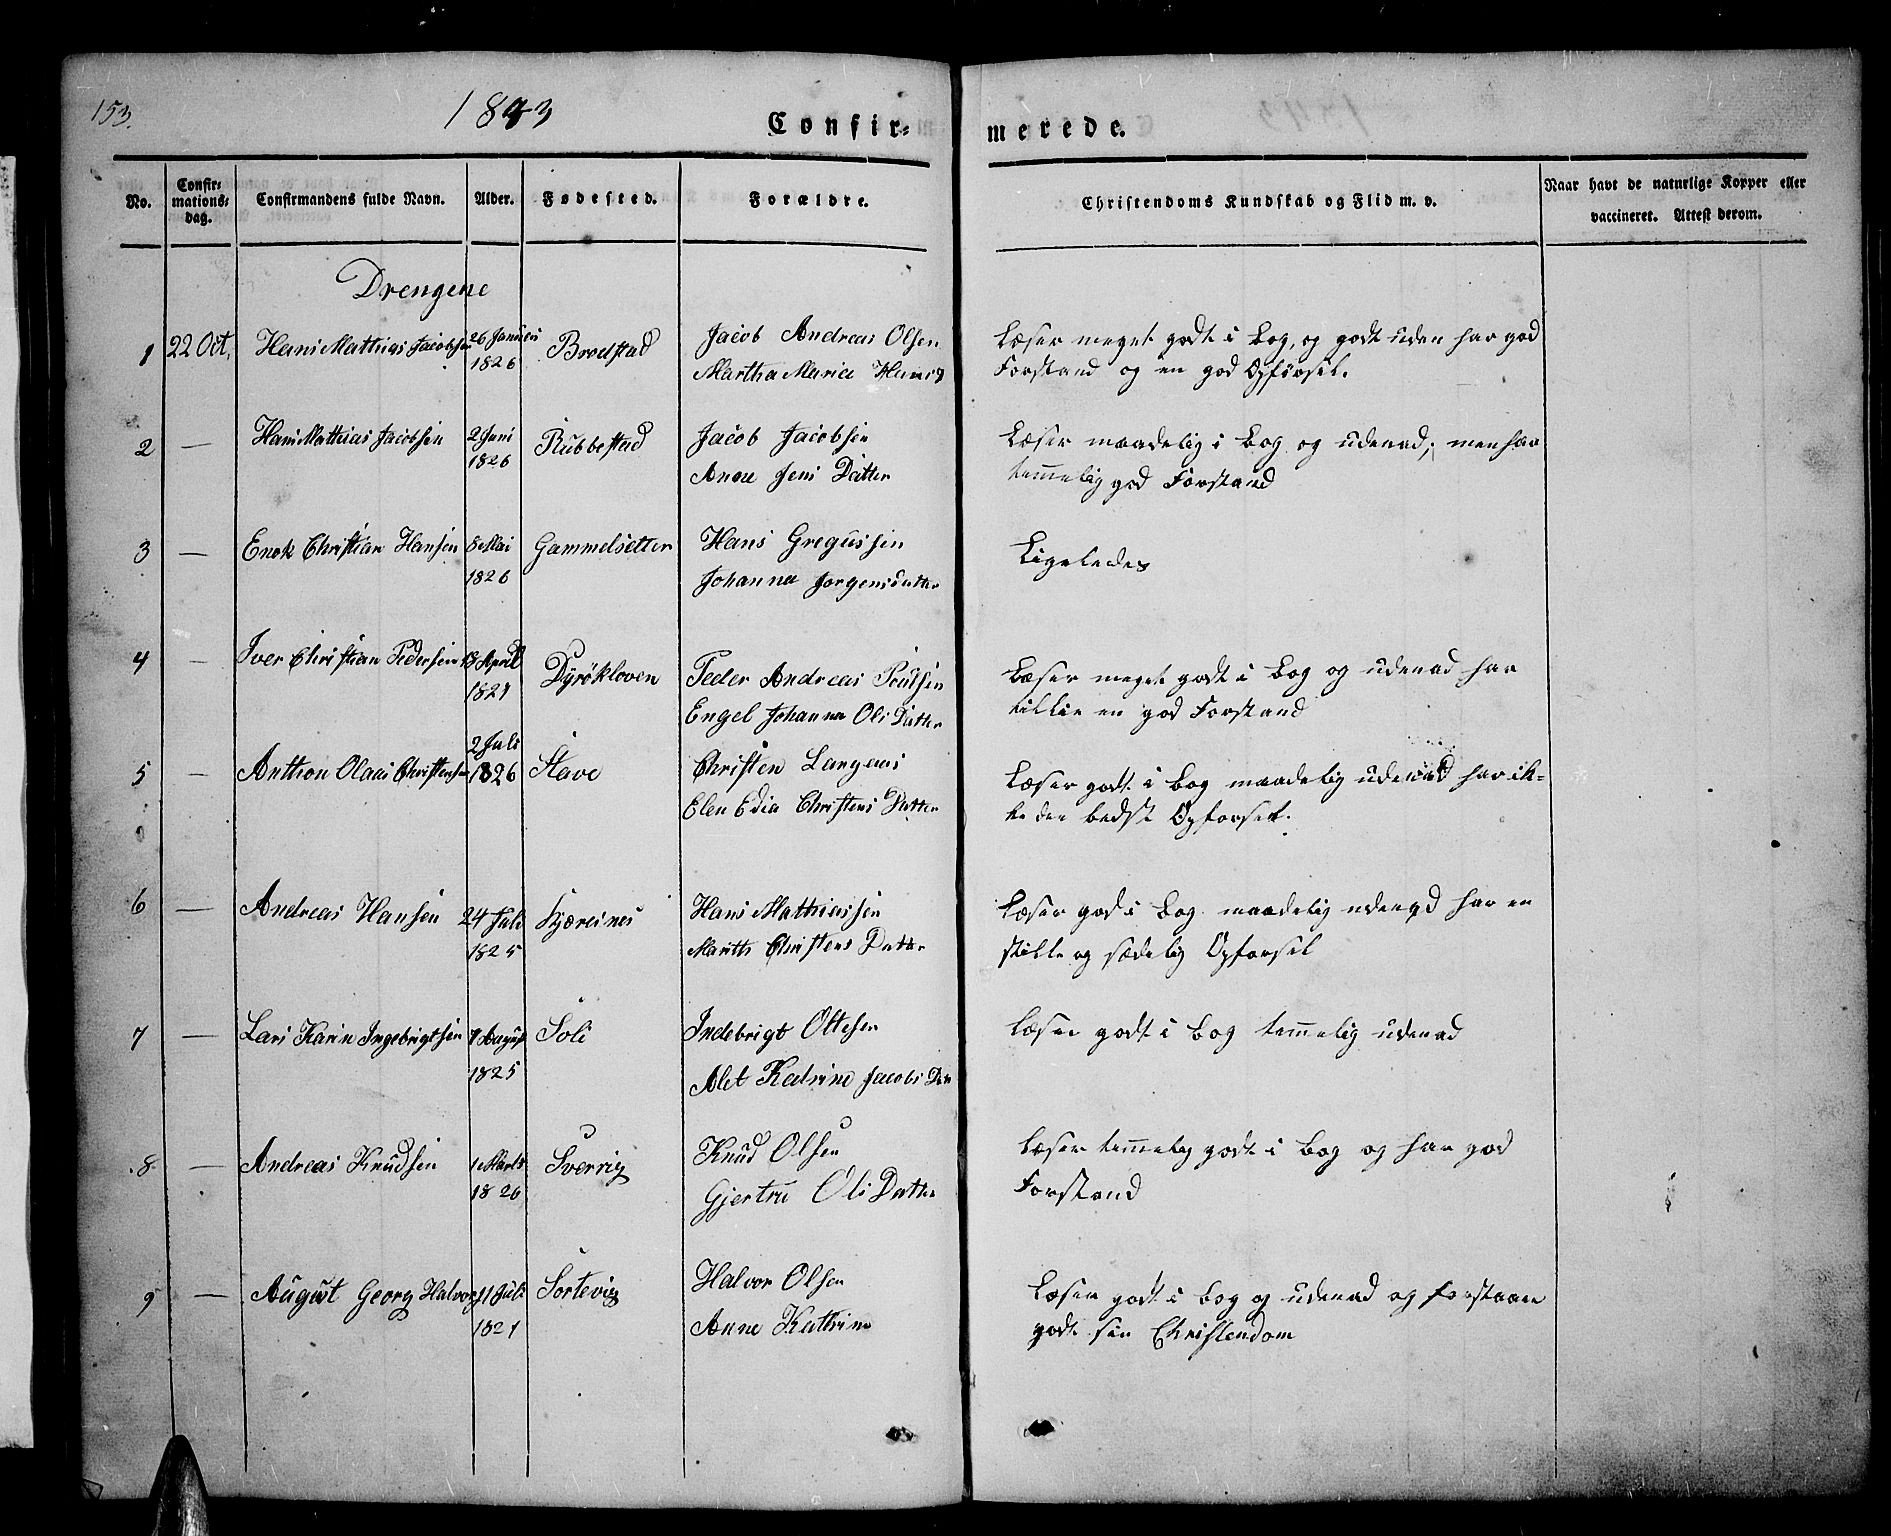 153.
1843
Confir= merede.
No.
Confir=
mations=
dag.
Confirmandens fulde Navn.
Alder.
Fødested.
Forældre.
Christendoms Kundskab og Flid m. v.
Naar havt de naturlige Kopper eller
vaccineret. Attest derom.
Drengene
1 22 Oct. Hans Mathias Jacobsen 26 Januari 1826 Brodstad Jacob Andreas Olsen
Martha Maria Hans
Læser meget godt i Bog, og godt uden har god
Forstand og en god Opførsel.
2 — Hans Mathias Jacobsen 2 Juni 1826 Rubbestad Jacob Jacobsen
Anne Jens Datter
Læser maadelig i Bog og udenad; men har
temmelig god Forstand
3 — Enok Christian Hansen 8 Mai 1826 Gammelsetter Hans Gregussen
Johanna Jorgensdatter
Ligeledes
4 — Iver Christian Pedersen April Dyrøkloven Peder Andreas Poulsen
Engel Johanna Ols Datter
Læser meget godt i Bog og udenad har
tillie en god Forstand
5 — Anthon Olaas Christensen 2 Juli 1826 Stave Christen Langaas
Elen Edia Christens Datter
Læser godt i Bog maadelig udenad har ik=
ke den bedst Opforsel.
6 — Andreas Hansen 24 Juli 1825 Kjæreines Hans Mathiassen
Marith Christens Datter
Læser god i Bog maadelig udenad har en
stille og sædelig Opforsel
7 — Lars Karin Ingebrigtsen August 1825 Soli Indebrigt Ottesen
Alet Katrine Jacobs Dat
Læser godt i Bog temmelig udenad
8 — Andreas Knudsen 1 Marts 1826 Sverrig Knud Olsen
Gjertru Ols Datter
Læser temmelig godt i Bog og har god
Forstand
9 — August Georg Halvor 11 Juli Sortevig Halvor Olsen
Anne Kathrine
Læser godt i Bog og udenad og forstaar
godt sin Christendom